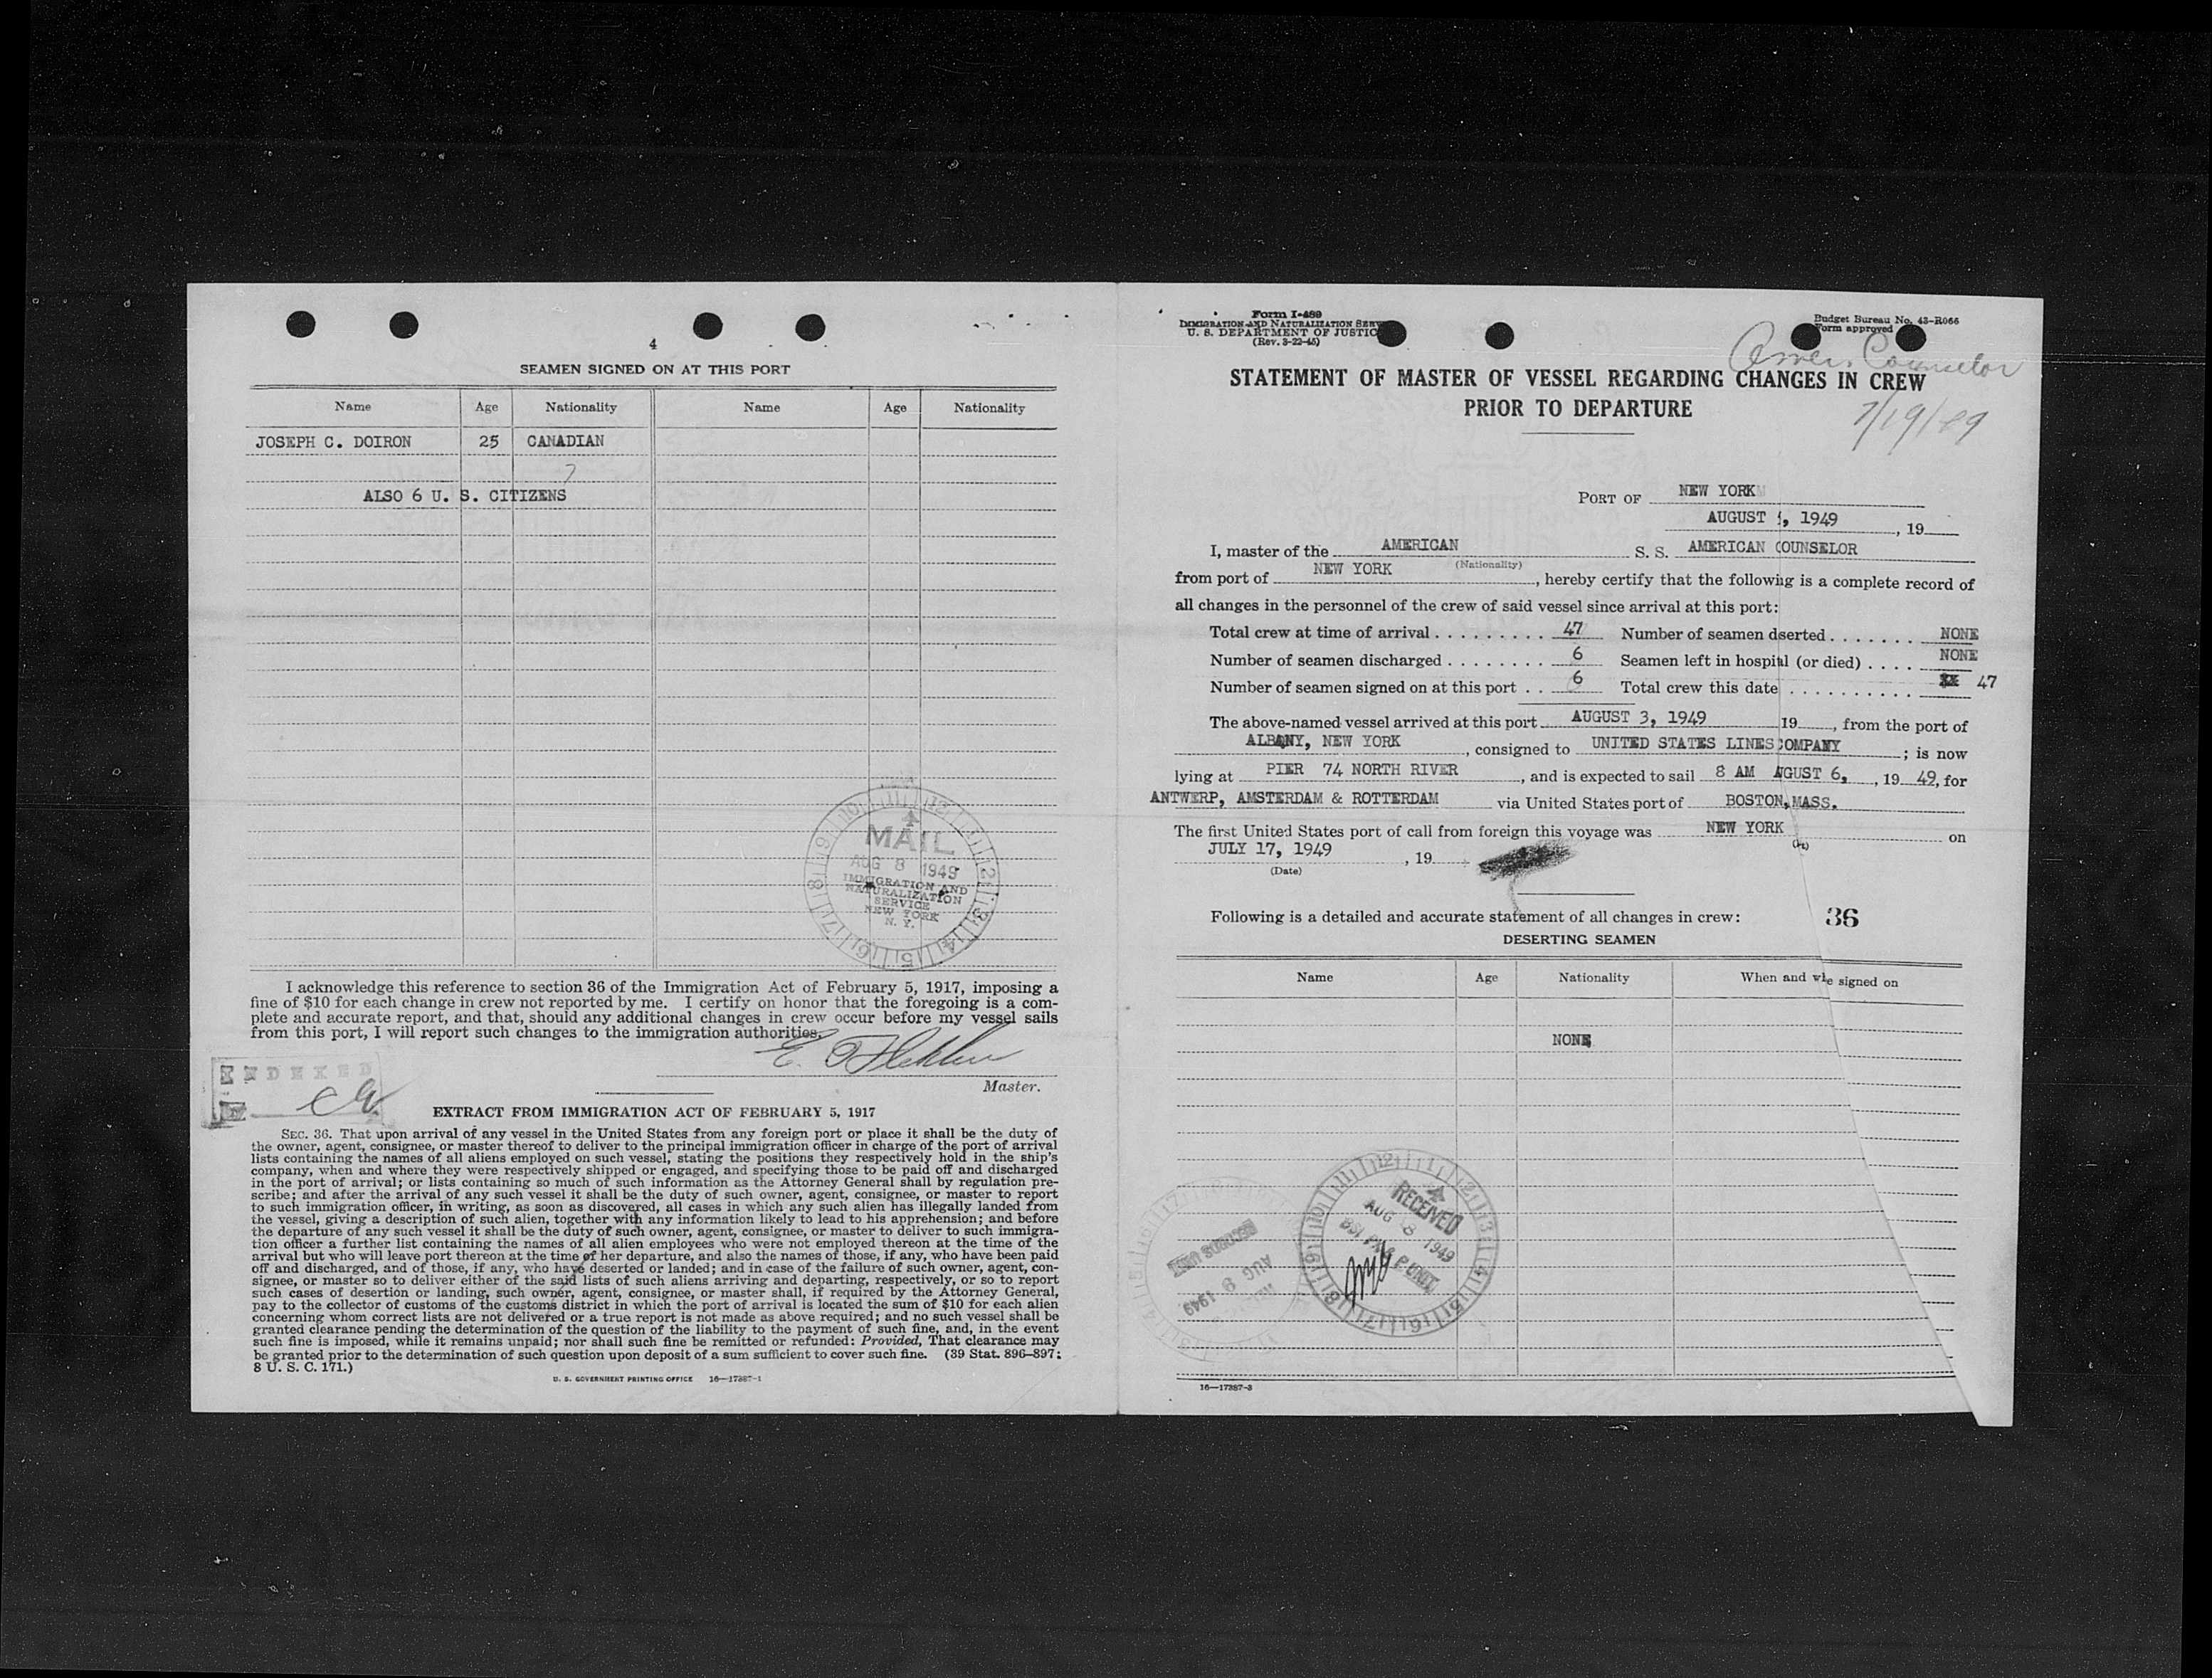 4
SEAMEN SIGNED ON AT THIS PORT
Name Age Nationality Name Age Nationality
JOSEPH C. DOIRON 25 CANADIAN
7
ALSO 6 U. S. CITIZENS
MAIL
AUG 8 1949
IMMIGRATION AND
NATURALIZATION
SERVICE
NEW YORK
N. Y.
I acknowledge this reference to section 36 of the Immigration Act of February 5, 1917, imposing a
fine of $10 for each change in crew not reported by me. I certify on honor that the foregoing is a com-
plete and accurate report, and that, should any additional changes in crew occur before my vessel sails
from this port, I will report such changes to the immigration authorities.
E.
Master.
INDEXED
EXTRACT FROM IMMIGRATION ACT OF FEBRUARY 5, 1917
SEC. 36. That upon arrival of any vessel in the United States from any foreign port or place it shall be the duty of
the owner, agent, consignee, or master thereof to deliver to the principal immigration officer in charge of the port of arrival
lists containing the names of all aliens employed on such vessel, stating the positions they respectively hold in the ship's
company, when and where they were respectively shipped or engaged, and specifying those to be paid off and discharged
in the port of arrival; or lists containing so much of such information as the Attorney General shall by regulation pre-
scribe; and after the arrival of any such vessel it shall be the duty of such owner, agent, consignee, or master to report
to such immigration officer, in writing, as soon as discovered, all cases in which any such alien has illegally landed from
the vessel, giving a description of such alien, together with any information likely to lead to his apprehension; and before
the departure of any such vessel it shall be the duty of such owner, agent, consignee, or master to deliver to such immigra-
tion officer a further list containing the names of all alien employees who were not employed thereon at the time of the
arrival but who will leave port thereon at the time of her departure, and also the names of those, if any, who have been paid
off and discharged, and of those, if any, who have deserted or landed; and in case of the failure of such owner, agent, con-
signee, or master so to deliver either of the said lists of such aliens arriving and departing, respectively, or so to report
such cases of desertion or landing, such owner, agent, consignee, or master shall, if required by the Attorney General,
pay to the collector of customs of the customs district in which the port of arrival is located the sum of $10 for each alien
concerning whom correct lists are not delivered or a true report is not made as above required; and no such vessel shall be
granted clearance pending the determination of the question of the liability to the payment of such fine, and, in the event
such fine is imposed, while it remains unpaid; nor shall such fine be remitted or refunded: Provided, That clearance may
be granted prior to the determination of such question upon deposit of a sum sufficient to cover such fine. (39 Stat. 896–897;
8 U. S. C. 171.)
U. S. GOVERNMENT PRINTING OFFICE 16—17387-1
Form I-489
IMMIGRATION AND NATURALIZATION SERV
U. S. DEPARTMENT OF JUSTIC
(Rev. 3-22-45)
Budget Bureau No. 43-R066
Form approved
Amer. Counselor
7/19/49
STATEMENT OF MASTER OF VESSEL REGARDING CHANGES IN CREW
PRIOR TO DEPARTURE
PORT OF NEW YORK
AUGUST , 1949 , 19
I, master of the AMERICAN S. S. AMERICAN COUNSELOR
(Nationality)
from port of NEW YORK , hereby certify that the following is a complete record of
all changes in the personnel of the crew of said vessel since arrival at this port:
Total crew at time of arrival 47 Number of seamen dserted NONE
Number of seamen discharged 6 Seamen left in hospital (or died) NONE
Number of seamen signed on at this port 6 Total crew this date 47
The above-named vessel arrived at this port AUGUST 3, 1949 19 , from the port of
ALBANY, NEW YORK , consigned to UNITED STATES LINES COMPANY ; is now
lying at PIER 74 NORTH RIVER , and is expected to sail 8 AM AGUST 6, , 19 49, for
ANTWERP, AMSTERDAM & ROTTERDAM via United States port of BOSTON, MASS.
The first United States port of call from foreign this voyage was NEW YORK on
JULY 17, 1949 , 19
(Date)
Following is a detailed and accurate statement of all changes in crew: 36
DESERTING SEAMEN
Name Age Nationality When and whe signed on
NONE
RECEIVED
AUG 8 1949
BSI P&P UNIT
RECORDS UNIT
AUG 9 1949
16—17387-3